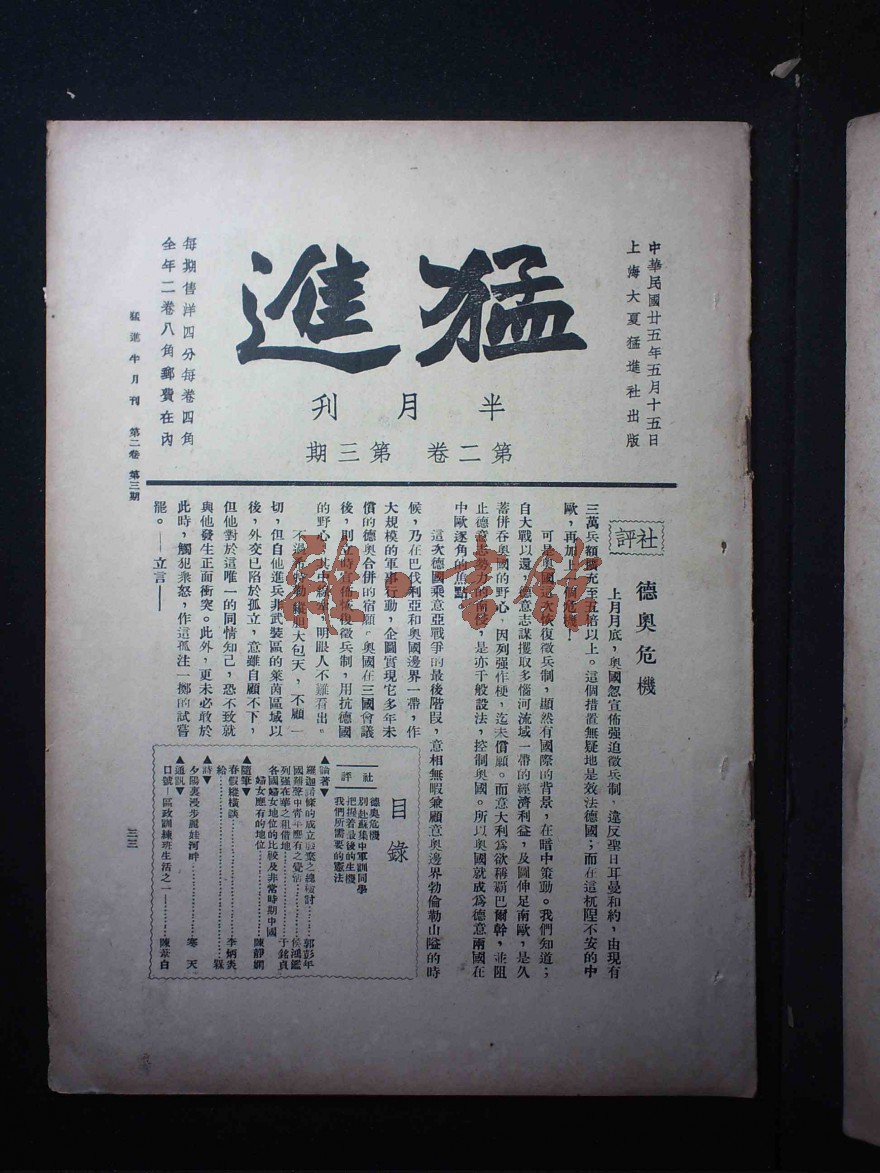 中華民國廿五年五月十五日
上海大夏猛進社出版
猛進
半月刊
第二卷 第三期
每期售洋四分每卷四角
全年二卷八角郵費在內
猛進半月刊 第二卷 第三期
社評
德奧危機
上月月底，奧國忽宣佈强迫徵兵制，違反聖日耳曼和約，由現有
三萬兵額擴充至五倍以上。這個措置無疑地是效法德國；而在這杌隉不安的中
歐，再加上一個危機！
可是奧國這次恢復徵兵制，顯然有國際的背景，在暗中策動。我們知道；
自大戰以還，德意志謀攫取多惱河流域一帶的經濟利益，及圖伸足南歐，是久
蓄併吞奧國的野心，因列强作梗，迄未償願。而意大利爲欲稱霸巴爾幹，並阻
止德意志勢力的南侵，是亦千般設法，控制奧國。所以奧國就成爲德意兩國在
中歐逐角的焦點。
這次德國乘意亞戰爭的最後階段，意相無暇兼顧意奧邊界勃倫勒山隘的時
候，乃在巴伐利亞和奧國邊界一帶，作
大規模的軍事行動，企圖實現它多年未
償的德奧合併的宿願。奧國在三國會議
後，則立時宣佈恢復徵兵制，用抗德國
的野心，其中線索，明眼人不難看出。
不過希特勒縱胆大包天，不顧一
切，但自他進兵非武裝區的萊茵區域以
後，外交已陷於孤立，意雖自顧不下，
但他對於這唯一的同情知己，恐不致就
與他發生正面衝突。此外，更未必敢於
此時，觸犯衆怒，作這孤注一擲的試嘗
罷。——立言——
目錄
社評
德奧危機
別赴蘇集中軍訓同學
把握着最後的生機
我們所需要的憲法
▲論著▼
羅迦諾條約的成立毀棄之總檢討……郭彭年
國難聲中青年應有之覺悟……侯鴻鑑
列强在華之租借地……于銘貞
各國婦女地位的比較及非常時期中國
婦女應有的地位……陳靜嫻
▲隨筆▼
春假縱橫談……李炳奐
給……
▲詩▼
夕陽裏漫步麗娃河畔……寒天
▲通訊▼
口號—區政訓練班生活之一……陳葦白
三三